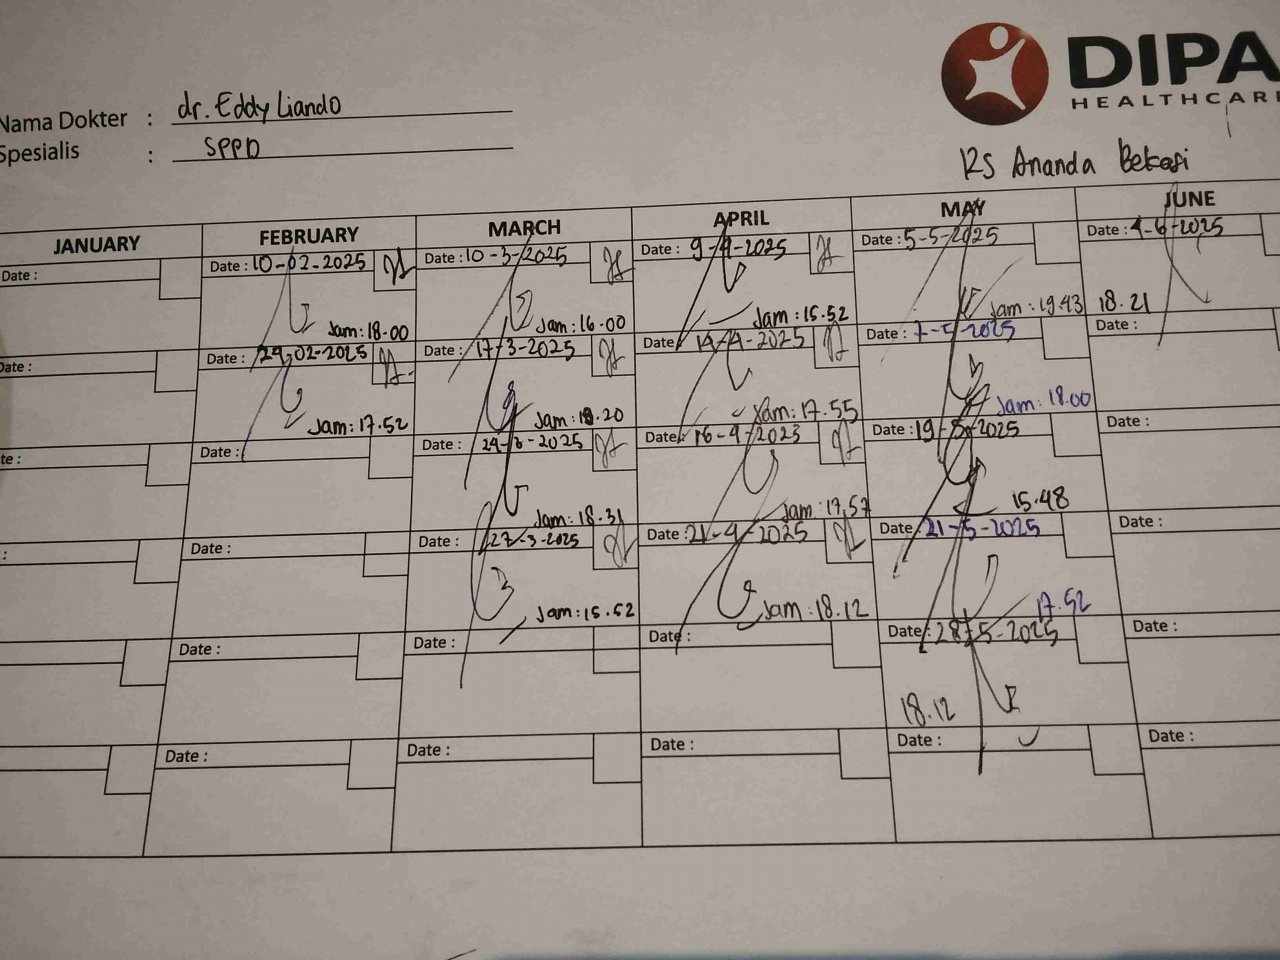 DIPA
HEALTHCARE
Nama Dokter : dr. Eddy Liando
Spesialis : SPPD
RS Ananda Bekasi
JANUARY FEBRUARY MARCH APRIL MAY JUNE
Date : Date : 10-02-2025 Date : 10-3-2025 Date : 9-4-2025 Date : 5-5-2025 Date : 4-6-2025
Jam: 18.00 Jam: 16.00 Jam: 15.52 Jam: 19.43 18.21
Date : Date : 24-02-2025 Date : 17-3-2025 Date : 14-4-2025 Date : 7-5-2025 Date :
Jam: 17.52 Jam: 18.20 Jam: 17.55 Jam: 18.00
te : Date : Date : 24-3-2025 Date : 16-4-2025 Date : 19-5-2025 Date :
Jam: 18.31 Jam: 17.57 15.48
: Date : Date : 27-3-2025 Date : 21-4-2025 Date : 21-5-2025 Date :
Jam: 15.52 Jam: 18.12 17.52
Date : Date : Date : Date : 28-5-2025 Date :
18.12
Date : Date : Date : Date : Date :